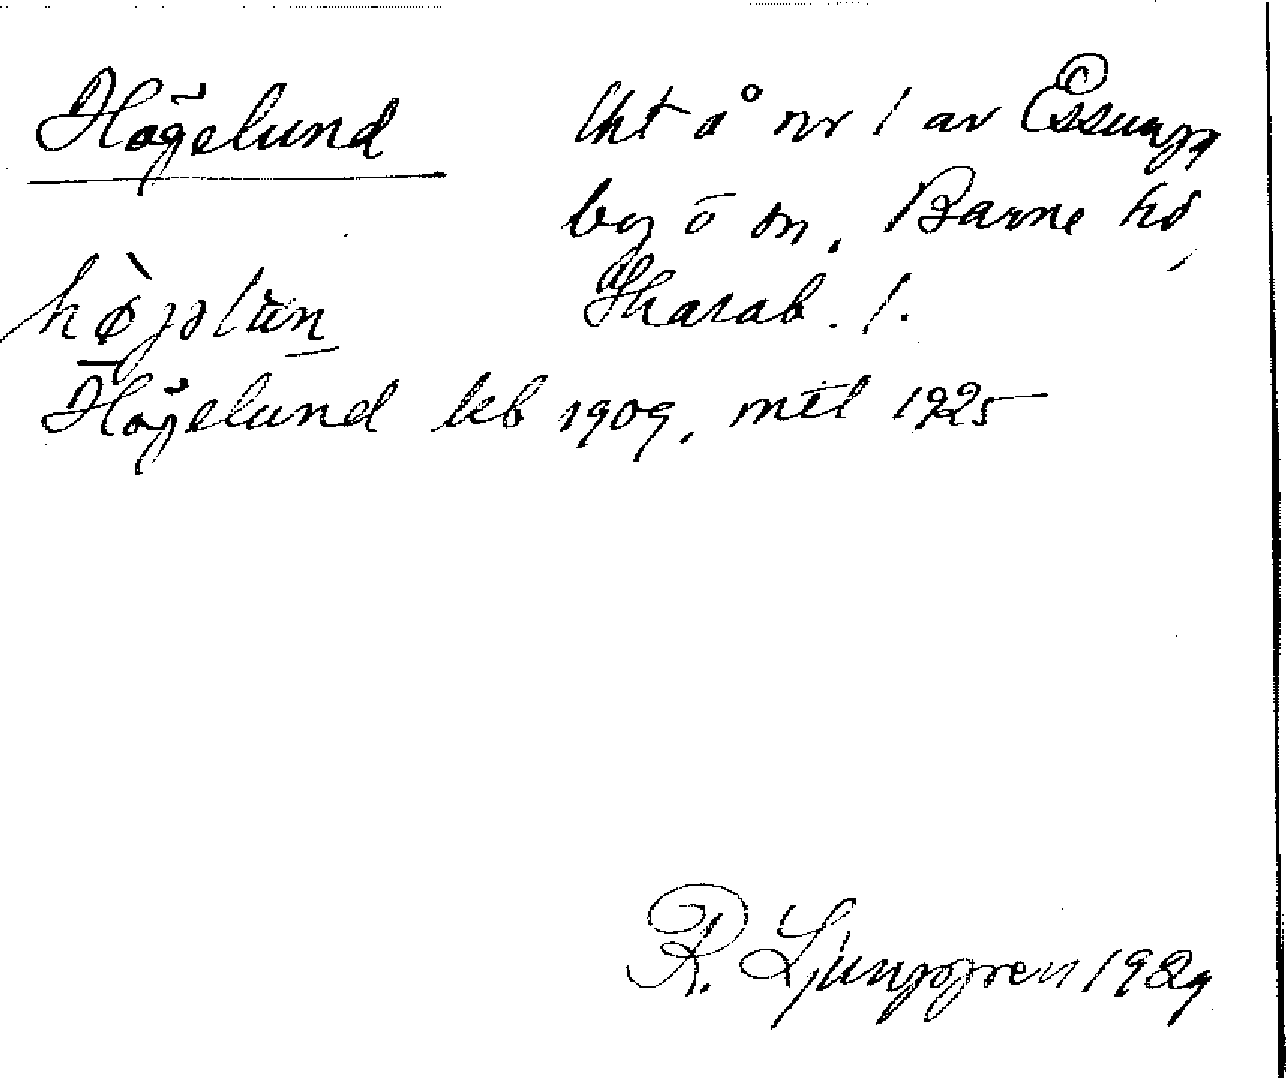 Högelund
lht å nr 1 av Essunga
by o sn, Barne hd,
Skarab. l.
hø̀jəlun
Högelund kb 1909, mtl 1925
R. Ljunggren 1929